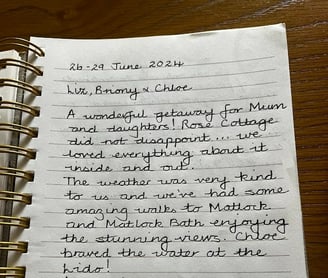 26-29 June 2024
Liz, Briony & Chloe
A wonderful getaway for Mum
and daughters! Rose Cottage
did not disappoint... we
loved everything about it
inside and out.
The weather was very kind
to us and we've had some
amazing walks to Matlock
and Matlock Bath enjoying
the stunning views. Chloe
braved the water at the
Lido!